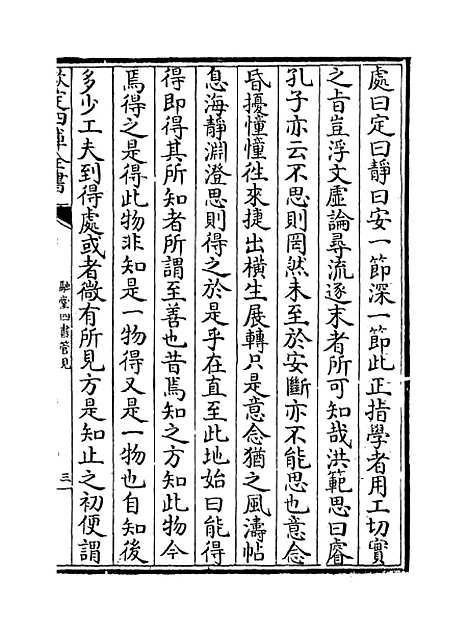 處曰定曰靜曰安一節深一節此正指學者用工切實
之㫖豈浮文虛論尋流逐末者所可知哉洪範思曰睿
孔子亦云不思則罔然未至於安斷亦不能思也意念
昏擾憧憧往來捷出橫生展轉只是意念猶之風濤帖
息海靜淵澄思則得之於是乎在直至此地始曰能得
得即得其所知者所謂至善也昔焉知之方知此物今
焉得之是得此物非知是一物得又是一物也自知後
多少工夫到得處或者微有所見方是知止之初便謂
欽定四庫全書
融堂四書管見
三